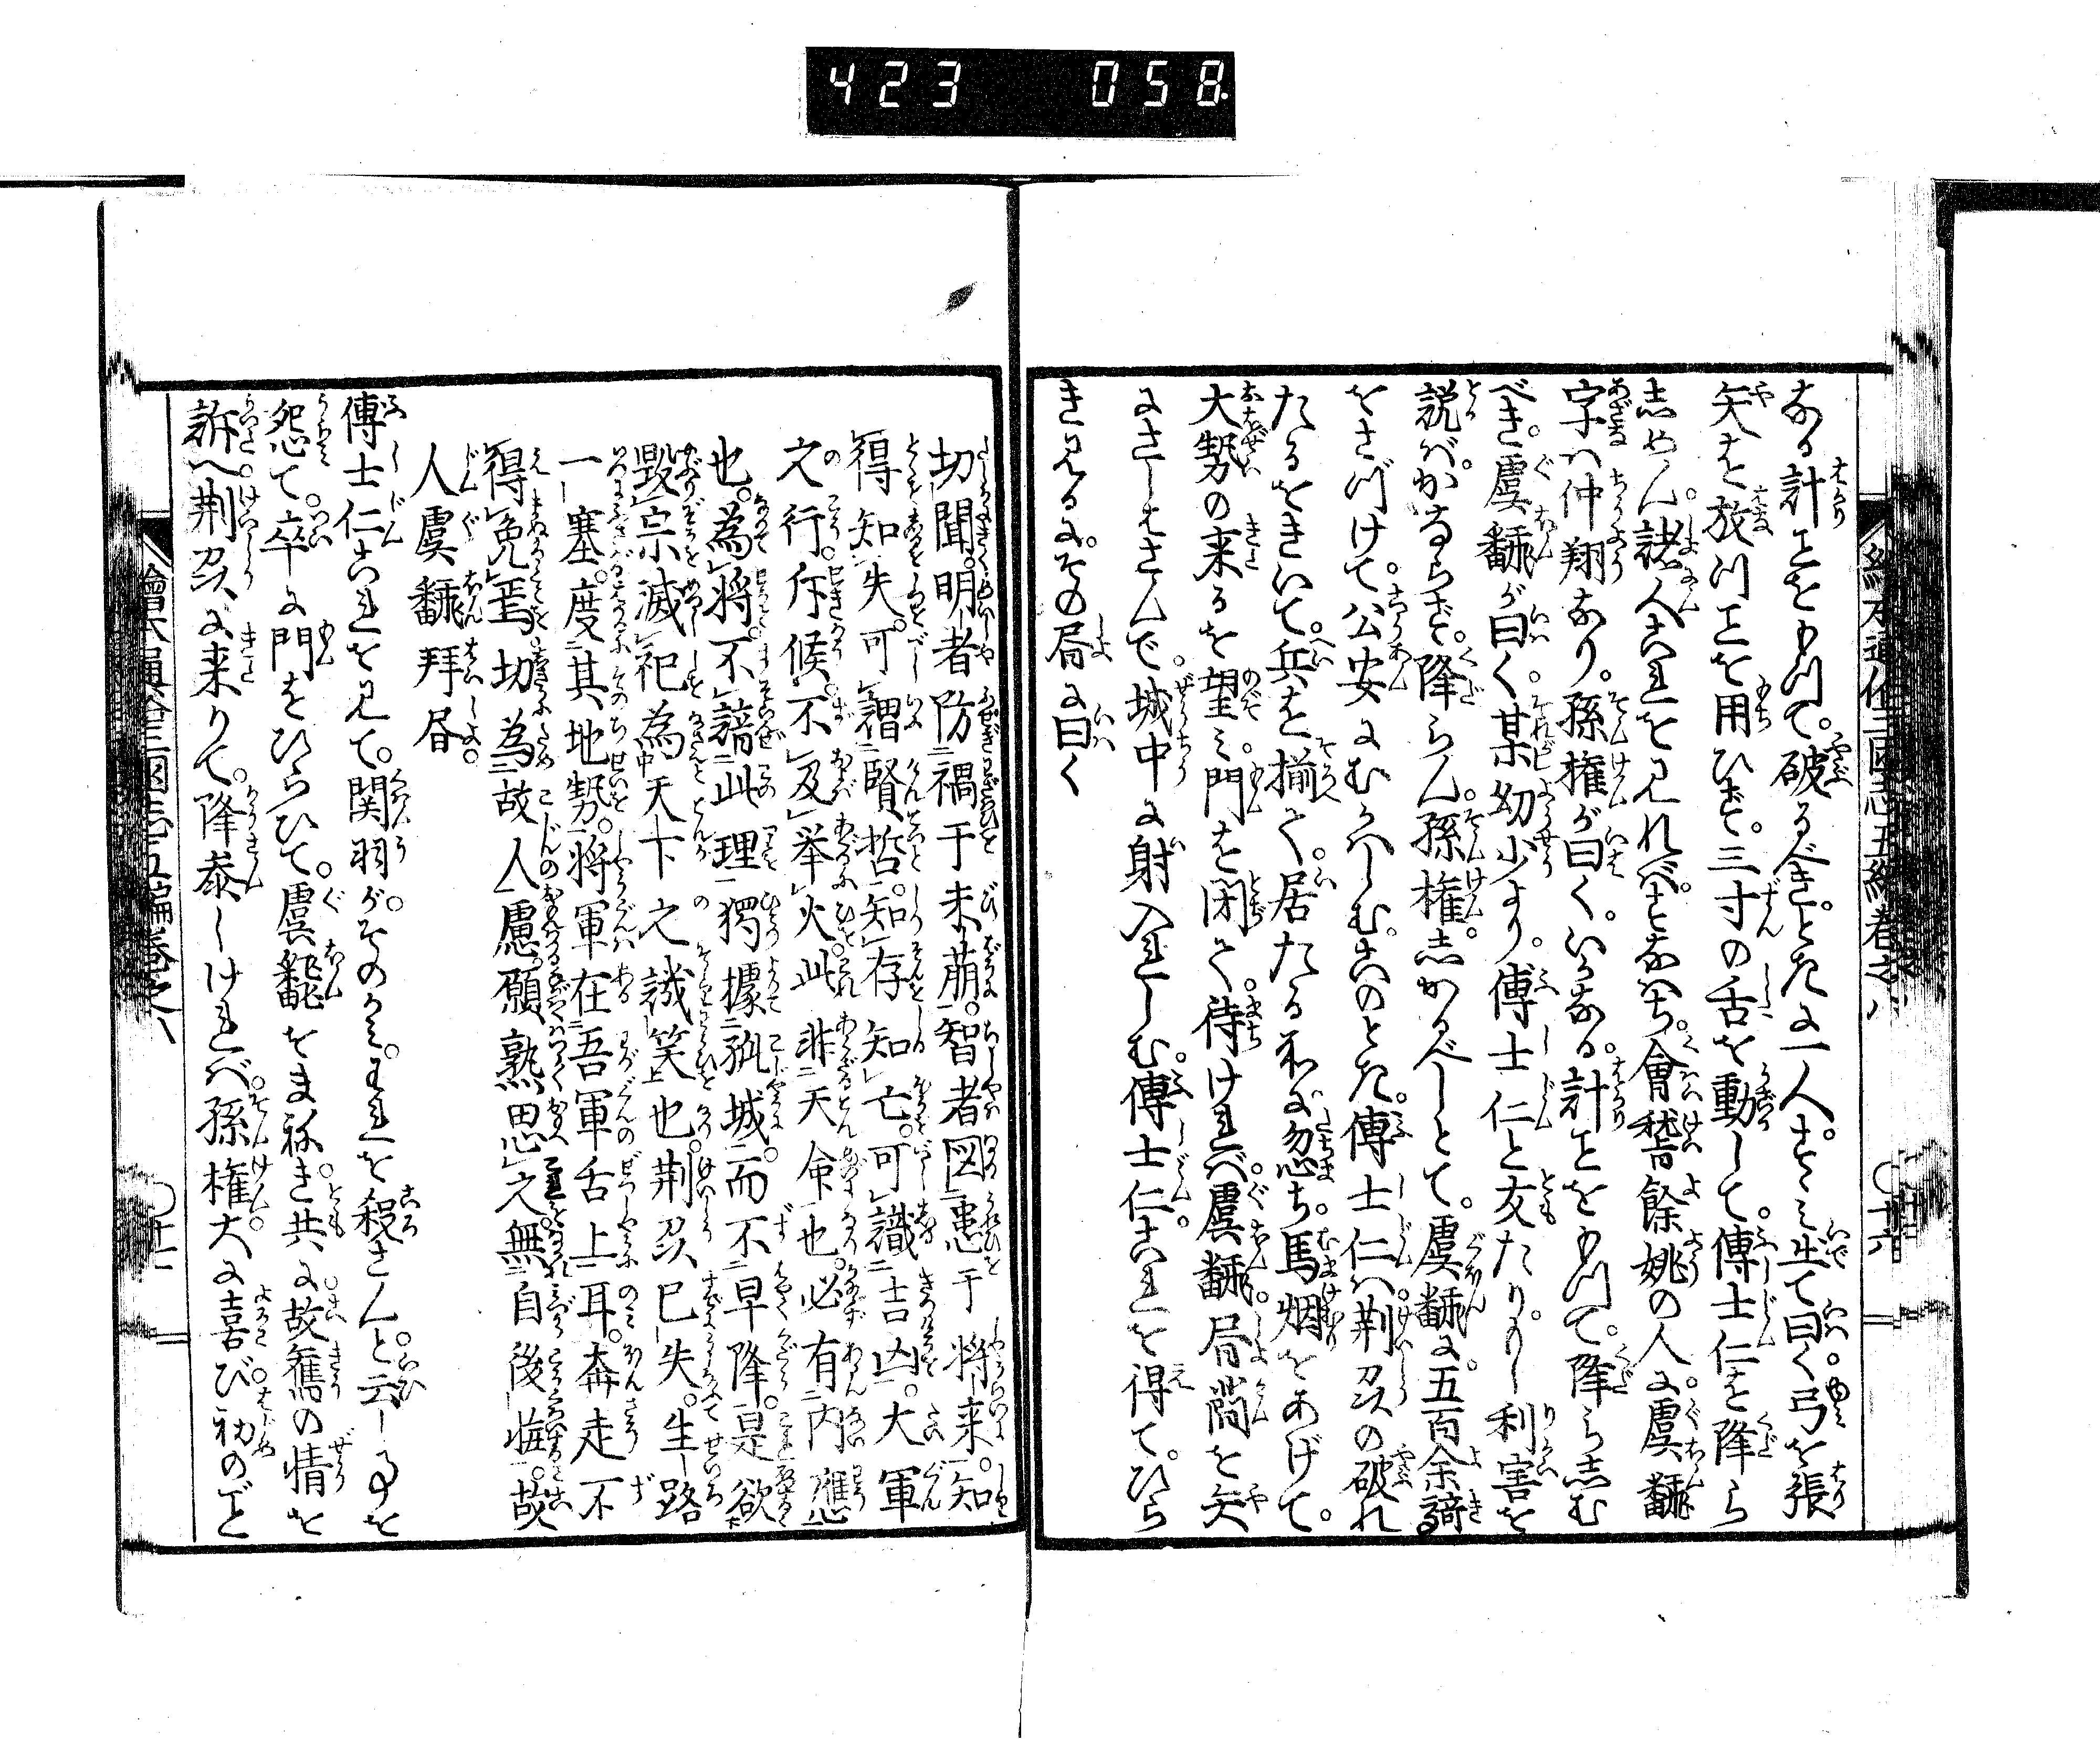 423 058
繪本通俗三國志五編卷之八 〇十六
なる計ことをもつて。破るべき。ときに一人。すゝみ出て曰く。弓を張
矢を放つことを用ひず。三寸の舌を動して。傅士仁を降ら
しめん。諸人これを見れば。すなはち。會稽餘姚の人に。虞翻
字ハ仲翔なり。孫権が曰く。いかなる。計ことをもつて。降らしむ
べき。虞翻が曰く。某幼少より。傅士仁と友たり。もし利害を
説バ。かならず。降らん。孫権。しかるべしとて。虞翻に。五百余騎
をさづけて。公安にむかハしむ。このとき。傅士仁ハ。荆州の破れ
たるをきいて。兵を揃へて。居たる所に。忽ち。馬烟をあげて。
大勢の来るを望ミ。門を閉て。待けれバ。虞翻。局簡を矢
にさしはさんで。城中に射入れしむ。傅士仁。これを得て。ひら
き見るに。その局に曰く
切聞。明者防禍于未萠。智者図患于将来。知
得知失。可謂賢哲。知存知亡。可識吉凶。大軍
之行。斥候不及挙火。此非天命也。必有内應
也。為将。不諳此理。獨據孤城。而不早降。是欲
毀宗滅祀。為天下之譏笑也。荆州已失。生路
一塞。度其地勢。将軍在吾軍舌上耳。奔走不
得免焉。切為故人慮。願熟思之。無自後悔。故
人虞翻拜昏。
傅士仁これを見て。関羽が。そのかミ。われを殺さんと。云し事を
怨て。卒に門をひらひて。虞翻をまねき。共に故舊の情を
訴へ。荆州に来りて。降参しけれバ。孫権。大に喜び。初のごと
繪本通俗三國志五編卷之八 〇十七